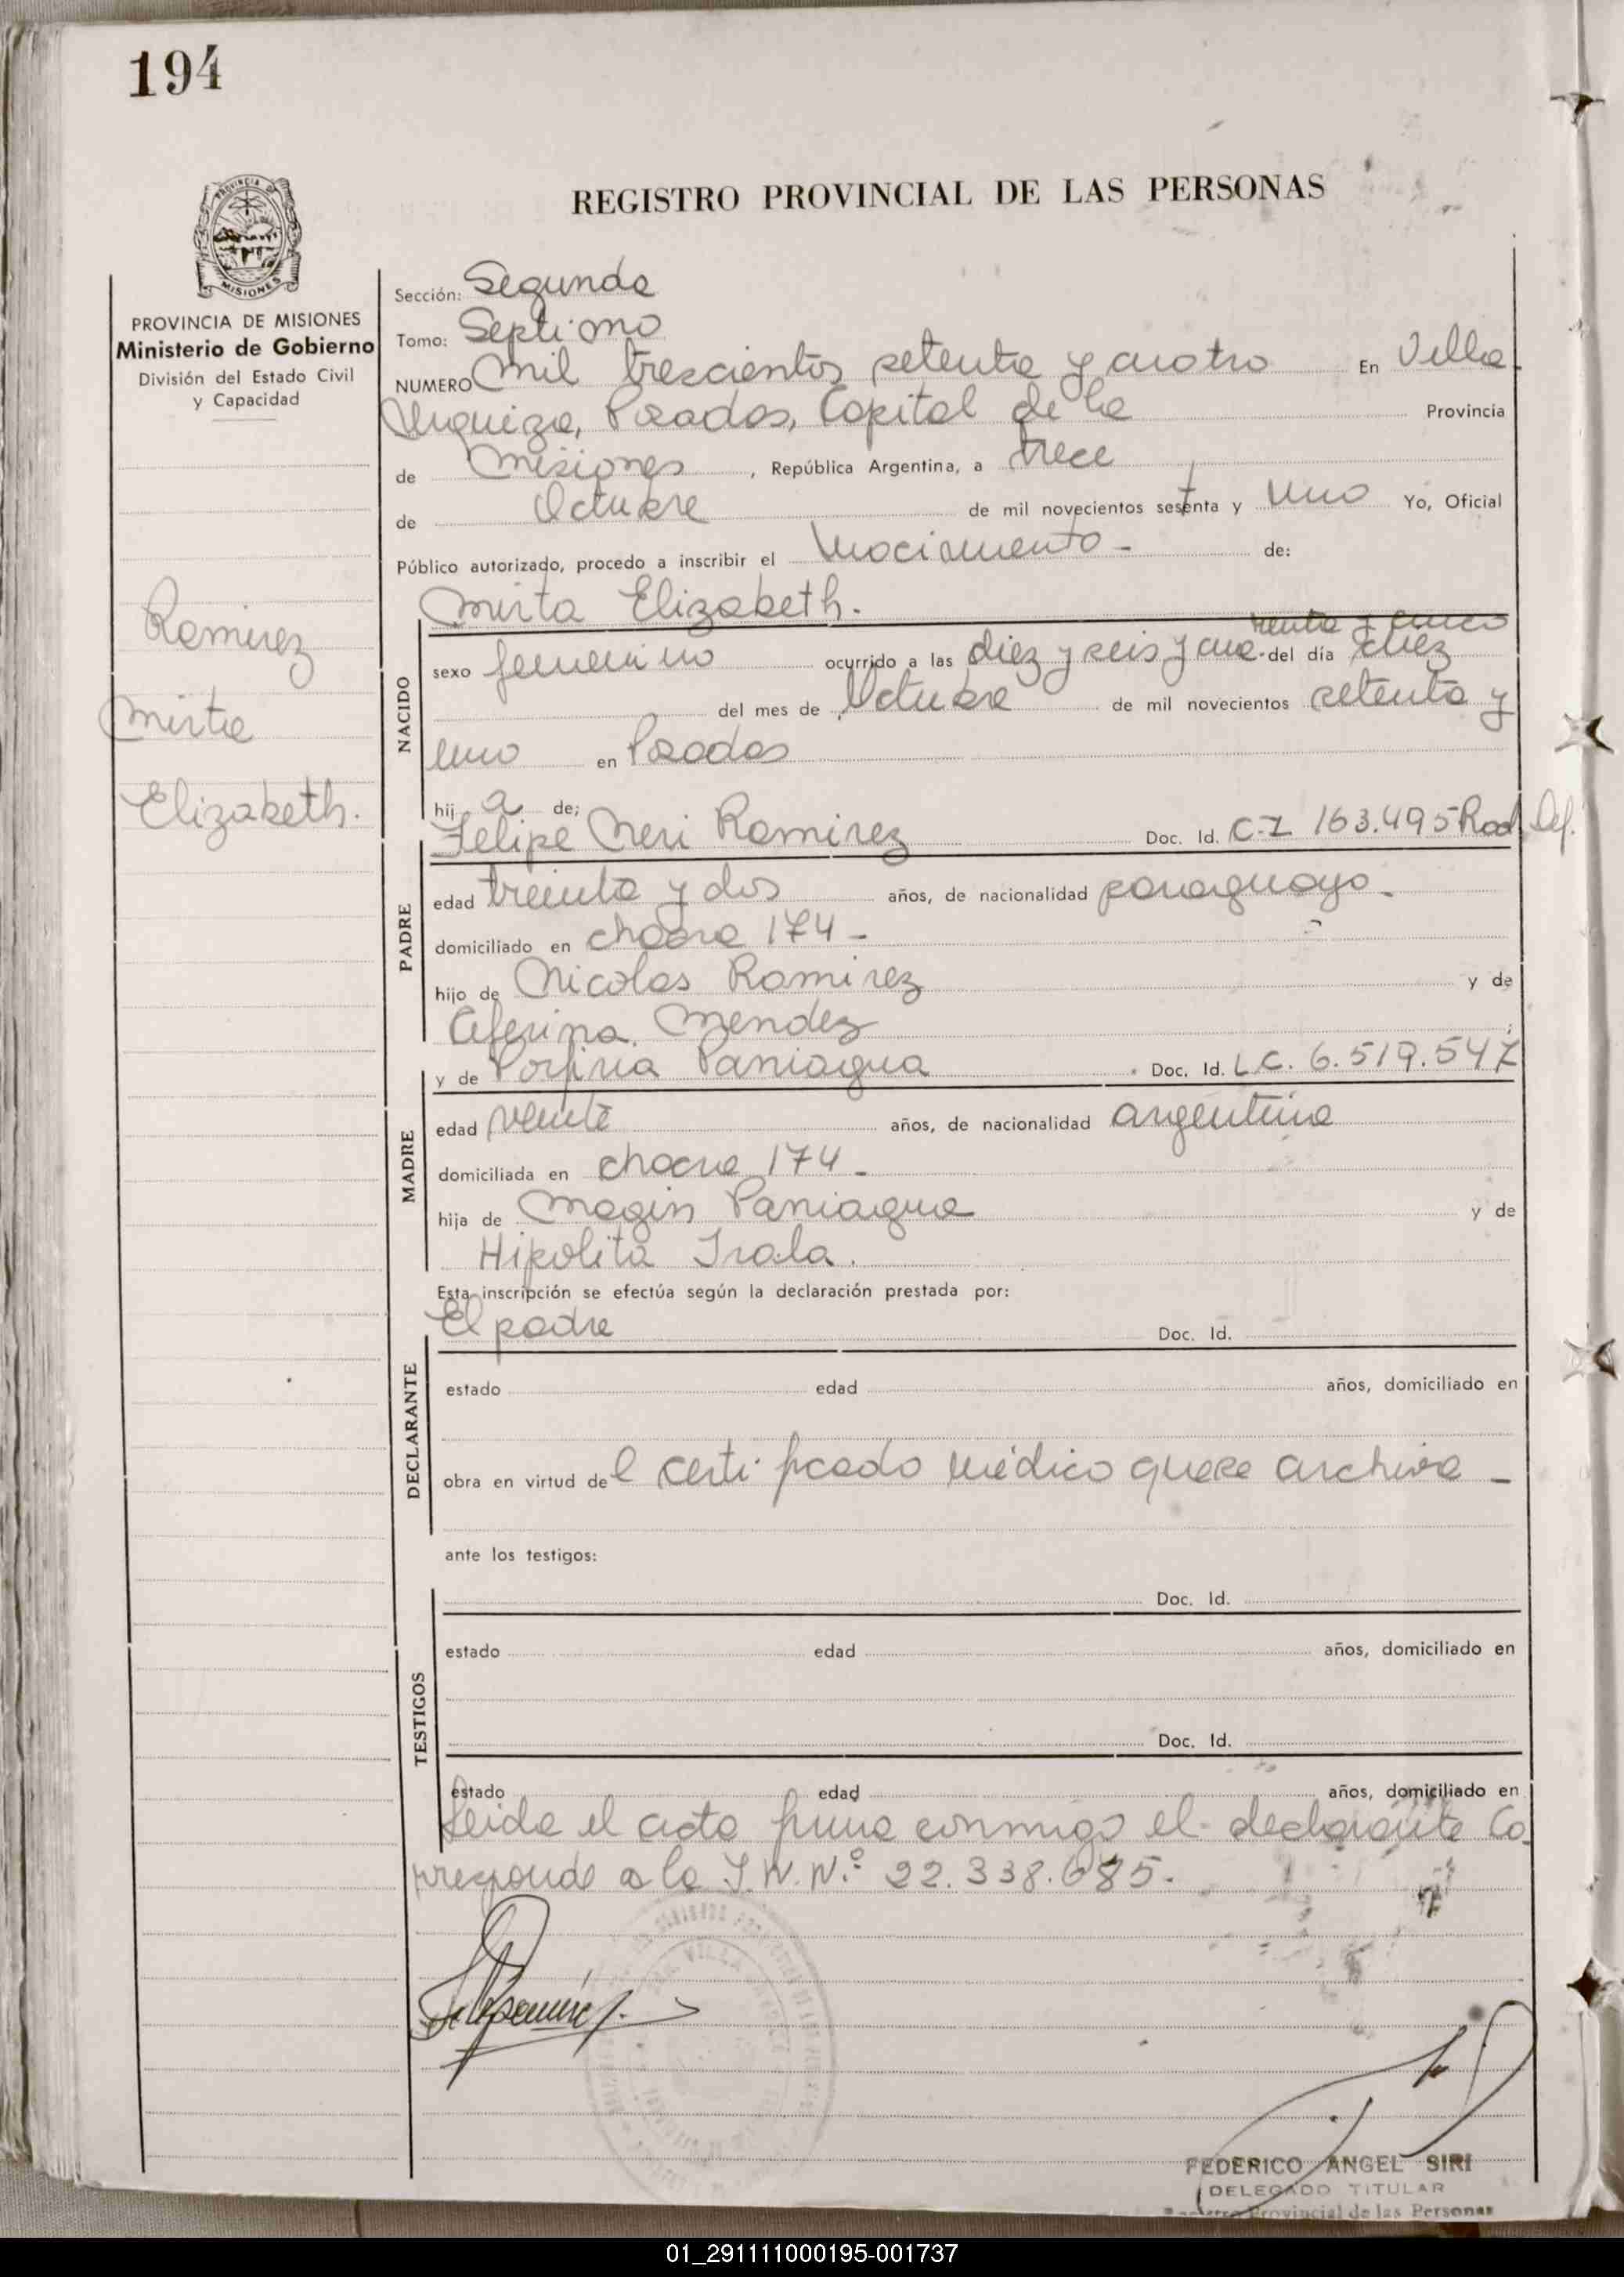 194
REGISTRO PROVINCIAL DE LAS PERSONAS
PROVINCIA DE
MISIONES
PROVINCIA DE MISIONES
Ministerio de Gobierno
División del Estado Civil
y Capacidad
Ramirez
Mirta
Elizabeth.
Sección: Segunda
Tomo: Septimo
NUMERO Mil trescientos setenta y cuatro En Villa
Urquiza, Posadas, Capital de la Provincia
de Misiones, República Argentina, a trece
de Octubre de mil novecientos sestenta y uno Yo, Oficial
Público autorizado, procedo a inscribir el Nacimiento - de:
Mirta Elizabeth.
renta y cinco
NACIDO
sexo femenino ocurrido a las diez y seis y cua- del día diez
del mes de Octubre de mil novecientos setenta y
uno en Posadas
hij a de;
Felipe Neri Ramirez Doc. Id. C-I 163.495 Rad. Def.
PADRE
edad treinta y dos años, de nacionalidad paraguayo -
domiciliado en chacra 174 -
hijo de Nicolas Ramirez y de
Ceferina Mendez
y de Porfiria Paniagua Doc. Id. L.C. 6.519.547
MADRE
edad veinte años, de nacionalidad argentina
domiciliada en chacra 174 -
hija de Magin Paniagua y de
Hipolita Irala.
Esta inscripción se efectúa según la declaración prestada por:
El padre Doc. Id.
DECLARANTE
estado edad años, domiciliado en
obra en virtud del certificado médico que se archiva -
ante los testigos:
Doc. Id.
TESTIGOS
estado edad años, domiciliado en
Doc. Id.
estado edad años, domiciliado en
Leida el acta firma conmigo el declarante Co
rresponde a la I.N.N.º 22.338.685.
FEDERICO ANGEL SIRI
DELEGADO TITULAR
Provincial de las Personas
01_291111000195-001737